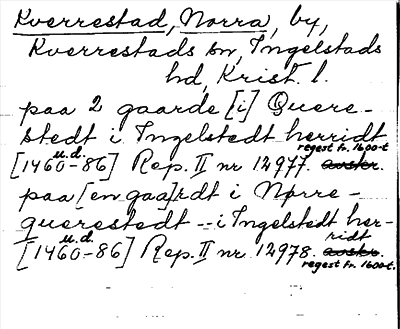 Kverrestad, Norra, by,
Kverrestads sn, Ingelstads
hd, Krist. l.
paa 2 gaarde [i] Quere-
stedt i Ingelstedt herridt
regest fr. 1600-t
u.d.
[1460-86] Rep. II nr 12977. avskr.
paa [en gaa]rdt i Nørre-
querestedt -- i Ingelstedt her-
ridt
u.d.
[1460-86] Rep. II nr 12978. avskr.
regest fr. 1600-t.